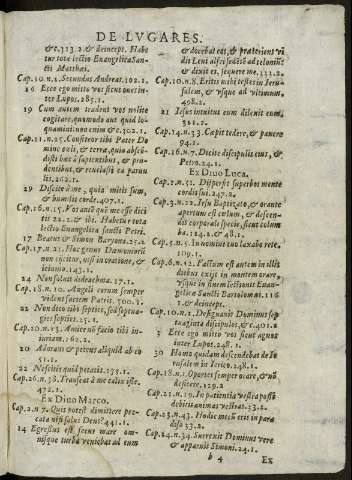 DE LVGARES.
&c. 313.2. & deinceps. Habe
tur tota lectio Euangelica San-
cti Matthæi.
Cap. 10.n.1. Secundus Andreas. 102.1.
16 Ecce ego mitto vos sicut oues in-
ter Lupos. 285.1.
19 Cum autem tradent vos nolite
cogitare, quomodo aut quid lo-
quamini non enim &c. 302.1.
Cap. 11.n.25. Confiteor tibi Pater Do
mine cœli, & terræ, quia abscõ-
disti hæc à sapientibus, & pru-
dentibus, & reuelasti ea paruu
lis. 262.1.
29 Discite à me, quia mitis sum,
& humilis corde. 407.1.
Cap. 16.n.15. Vos autē quē me esse dici
tis? 22.2. & ibi. Habetur tota
lectio Euangelica sancti Petri.
17 Beatus es Simon Baryona. 25.2
Cap. 17.n.21. Hoc genus Dæmoniorũ
non eijcitur, nisi in oratione, &
ieiunio. 143.1.
24 Non soluit didrachma. 17.1.
Cap. 18.n.10. Angeli eorum semper
vident faciem Patris. 300.1.
22 Non dico tibi septies, sed septua-
gies septies. 235.1.
Cap. 20.n.13. Amice nõ facio tibi in-
iuriam. 162.2.
20 Adorans & petens aliquid ab eo
51.1.
22 Nescitis quid petatis. 133.1.
Cap. 26.n.38. Transeat à me calix iste.
472.1.
Ex Diuo Marco.
Cap. 2.n.7. Quis potest dimittere pec-
cata nisi solus Deus? 441.1.
14 Egressus est foras mare om-
nisque turba veniebat ad eum
& docebat eos, & præteriens vi
dit Leui alfei sedētē ad teloniũ
& dixit ei, sequere me. 331.2.
Cap. 10.n.8. Eritis mihi testes in Ieru-
salem, & vsque ad vltimum.
498.2.
21 Iesus intuitus eum dilexit eum.
321.2.
Cap. 14.n.33. Cœpit tædere, & pauere
94.1.
Cap. 16.n.7. Dicite discipulis eius, &
Petro. 24.1.
Ex Diuo Luca.
Cap. 1.n.51. Dispersit superbos mente
cordis sui. 247.2.
Cap. 3.n.22. Iesu Baptizato, & orante
apertum est cœlum, & descen-
dit corporali specie, sicut colum
ba. 124.2. & 48.1.
Cap. 5.n.5. In nomine tuo laxabo rete.
109.1.
Cap. 6.n.12. Factum est autem in illis
diebus exijt in montem orare,
vsque in finem lectionis Euan-
gelica Sancti Bartolomæi. 116
1. & deinceps.
Cap. 10.n.1. Designauit Dominus sep
tuaginta discipulos, & c. 401.2
3 Ecce ego mitto vos sicut agnos
inter Lupos. 248.1.
30 Homo quidam descendebat de Ie
rusalem in Ierico. 248.1.
Cap. 18.n.1. Oportet semper orare, & nõ
deficere. 129.2
Cap. 21.n.19. In patientia vestra possi
debitis animas vestras. 33.2.
Cap. 23.n.43. Hodie mecũ eris in para
diso. 33.2.
Cap. 24.n.34. Surrexit Dominus vere
& apparuit Simoni. 24.1.
b 4 Ex